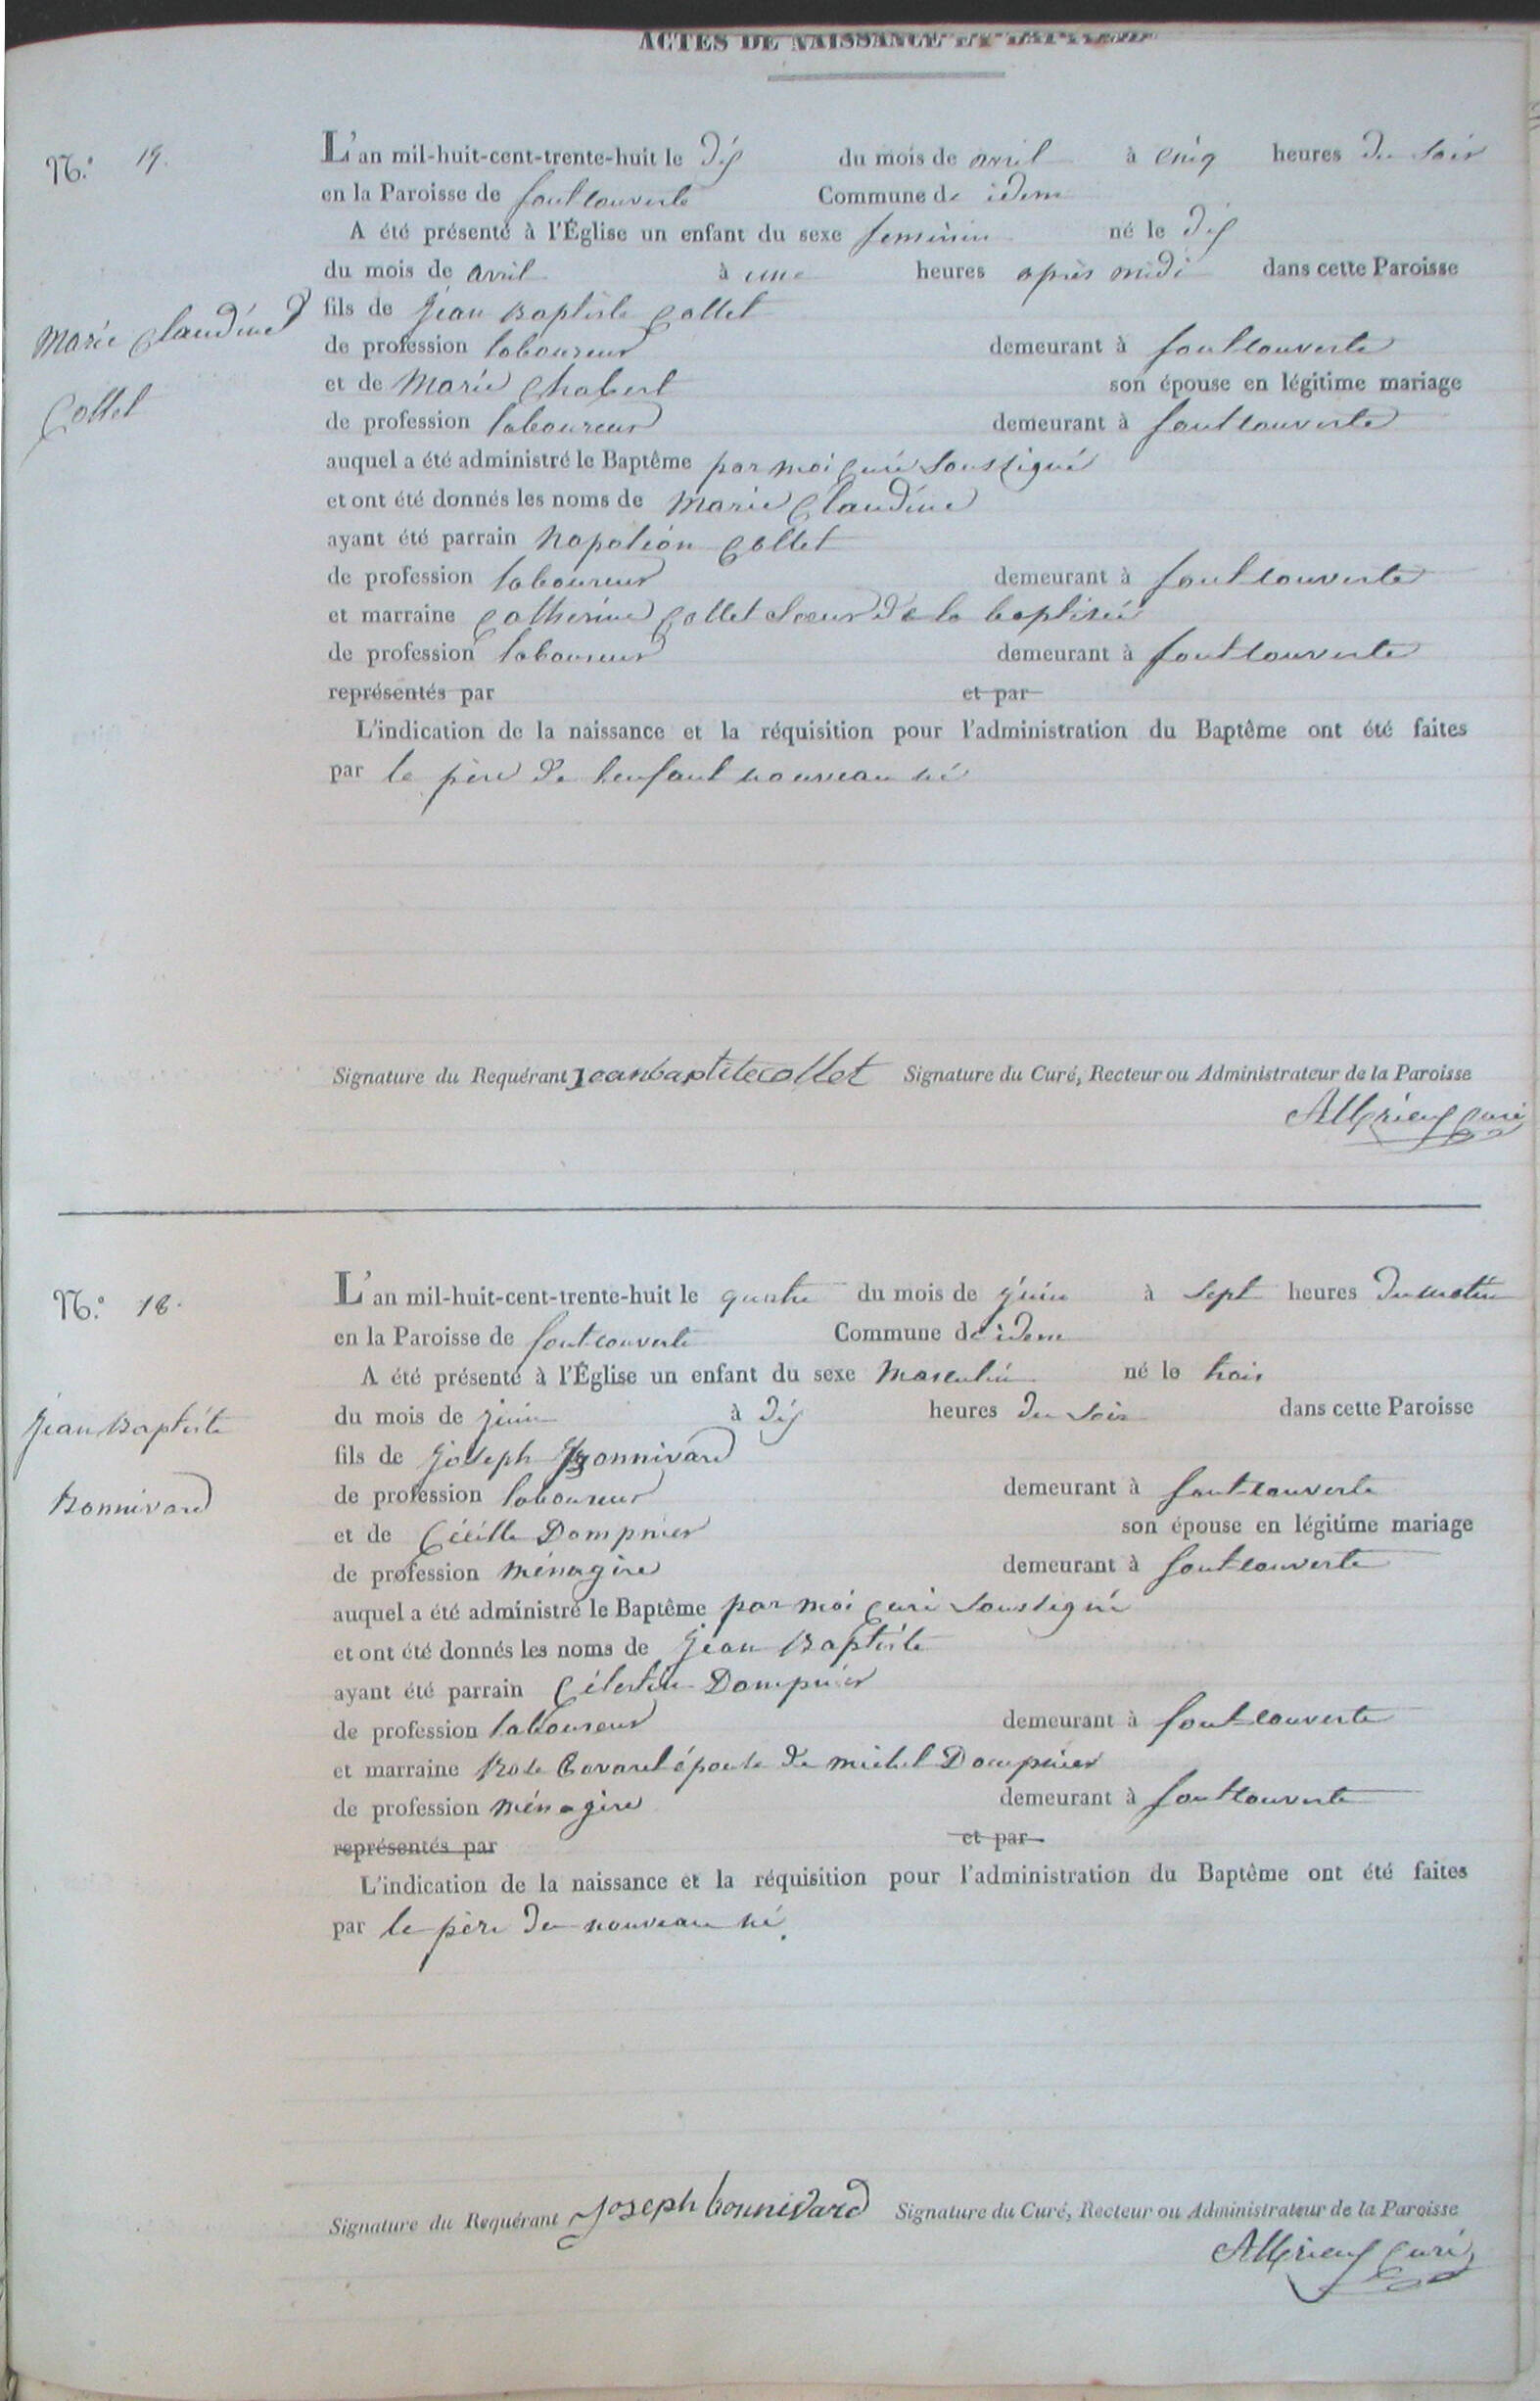 ACTES DE NAISSANCE ET BAPTÊME
N.° 17.
L'an mil-huit-cent-trente-huit le dix du mois de avril à cinq heures du soir
en la Paroisse de fontcouverte Commune de idem
A été présenté à l'Église un enfant du sexe feminin né le dix
du mois de avril à une heures après midi dans cette Paroisse
Marie Claudine
Collet
fils de jean Baptiste Collet
de profession laboureur demeurant à fontcouverte
et de Marie Chabert son épouse en légitime mariage
de profession laboureur demeurant à fontcouverte
auquel a été administré le Baptême par moi curé soussigné
et ont été donnés les noms de Marie Claudine
ayant été parrain Napoléon Collet
de profession laboureur demeurant à fontcouverte
et marraine Catherine Collet soeur de la baptisée
de profession laboureur demeurant à fontcouverte
représentés par et par
L'indication de la naissance et la réquisition pour l'administration du Baptême ont été faites
par le père de lenfant nouveau né
Signature du Requérant jeanbaptitecollet Signature du Curé, Recteur ou Administrateur de la Paroisse
curé
N.° 18.
L'an mil-huit-cent-trente-huit le quatre du mois de juin à sept heures du matin
en la Paroisse de fontcouverte Commune de idem
A été présenté à l'Église un enfant du sexe Masculin né le trois
du mois de juin à dix heures du soir dans cette Paroisse
jean Baptiste
Bonnivard
fils de joseph Bonnivard
de profession laboureur demeurant à fontcouverte
et de Cécille Dompnier son épouse en légitime mariage
de profession ménagère demeurant à fontcouverte
auquel a été administré le Baptême par moi curé soussigné
et ont été donnés les noms de jean Baptiste
ayant été parrain Célestin Dompnier
de profession laboureur demeurant à fontcouverte
et marraine Rose Covarel épouse de michel Dompnier
de profession ménagère demeurant à fontcouverte
représentés par et par
L'indication de la naissance et la réquisition pour l'administration du Baptême ont été faites
par le père du nouveau né.
Signature du Requérant joseph bonnivard Signature du Curé, Recteur ou Administrateur de la Paroisse
curé